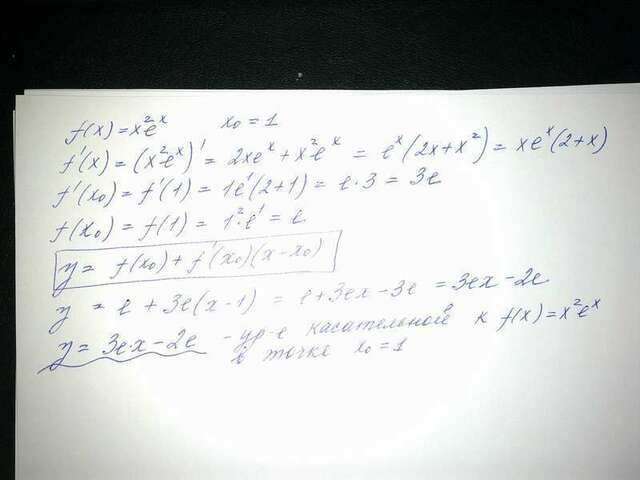 f(x)=x²eˣ x₀=1
f'(x)=(x²eˣ)'=2xeˣ+x²eˣ=eˣ(2x+x²)=xeˣ(2+x)
f'(x₀)=f'(1)=1e'(2+1)=e·3=3e
f(x₀)=f(1)=1²·e'=e.
y=f(x₀)+f'(x₀)(x-x₀)
y=e+3e(x-1)=e+3ex-3e=3ex-2e.
y=3e·x-2e -ур-е касательной к f(x)=x²eˣ
в точке x₀=1